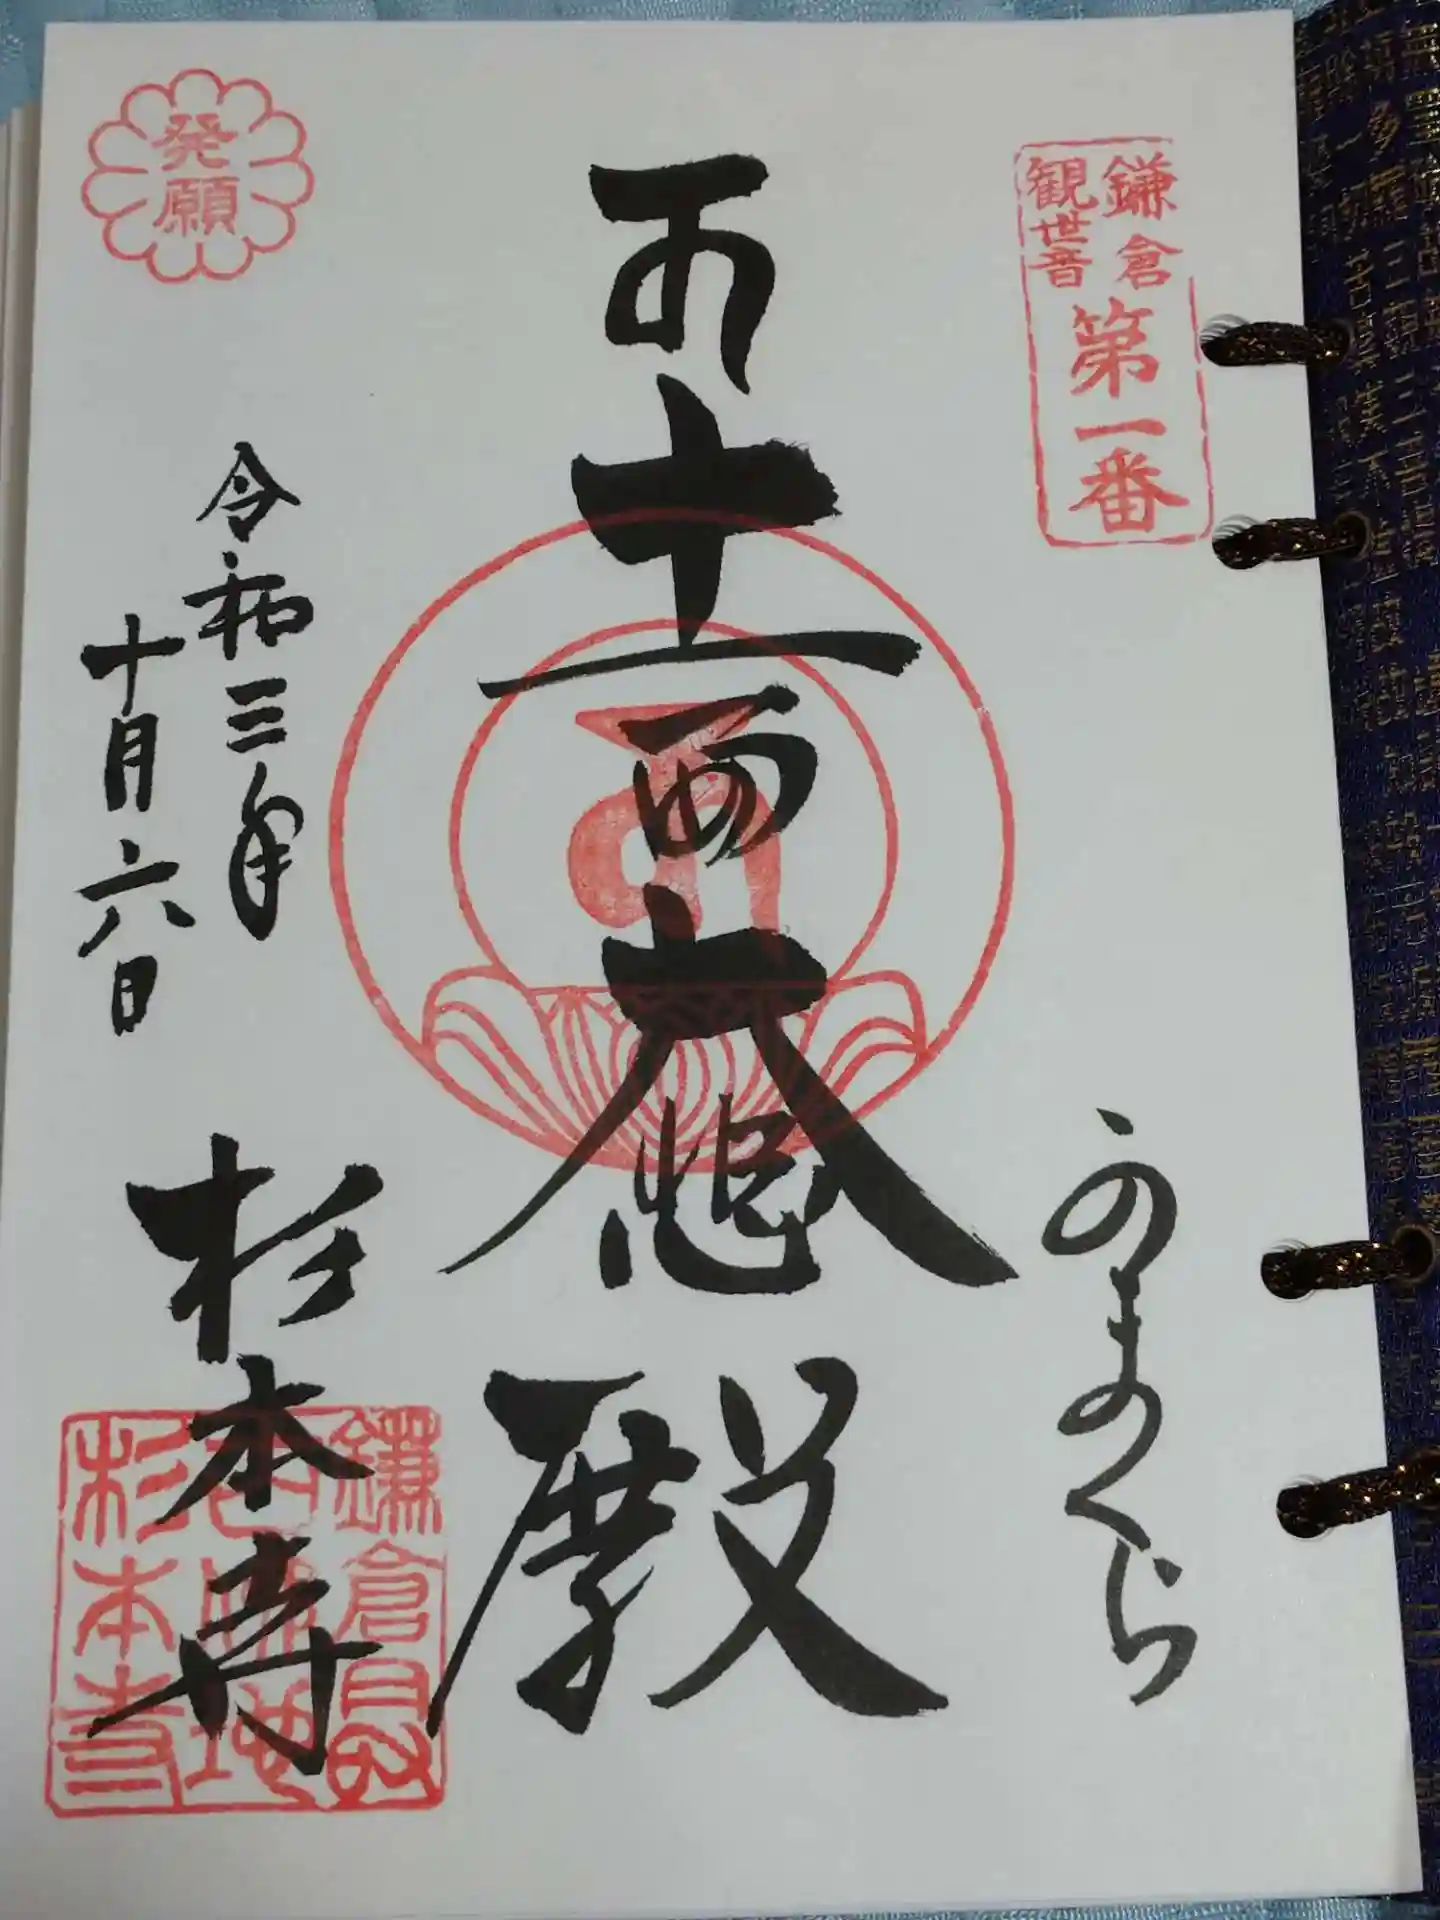 鎌倉
観世音
第一番
かまくら
十一面大悲殿
発願
令和三年
十月六日
杉本寺
鎌倉
杉本寺